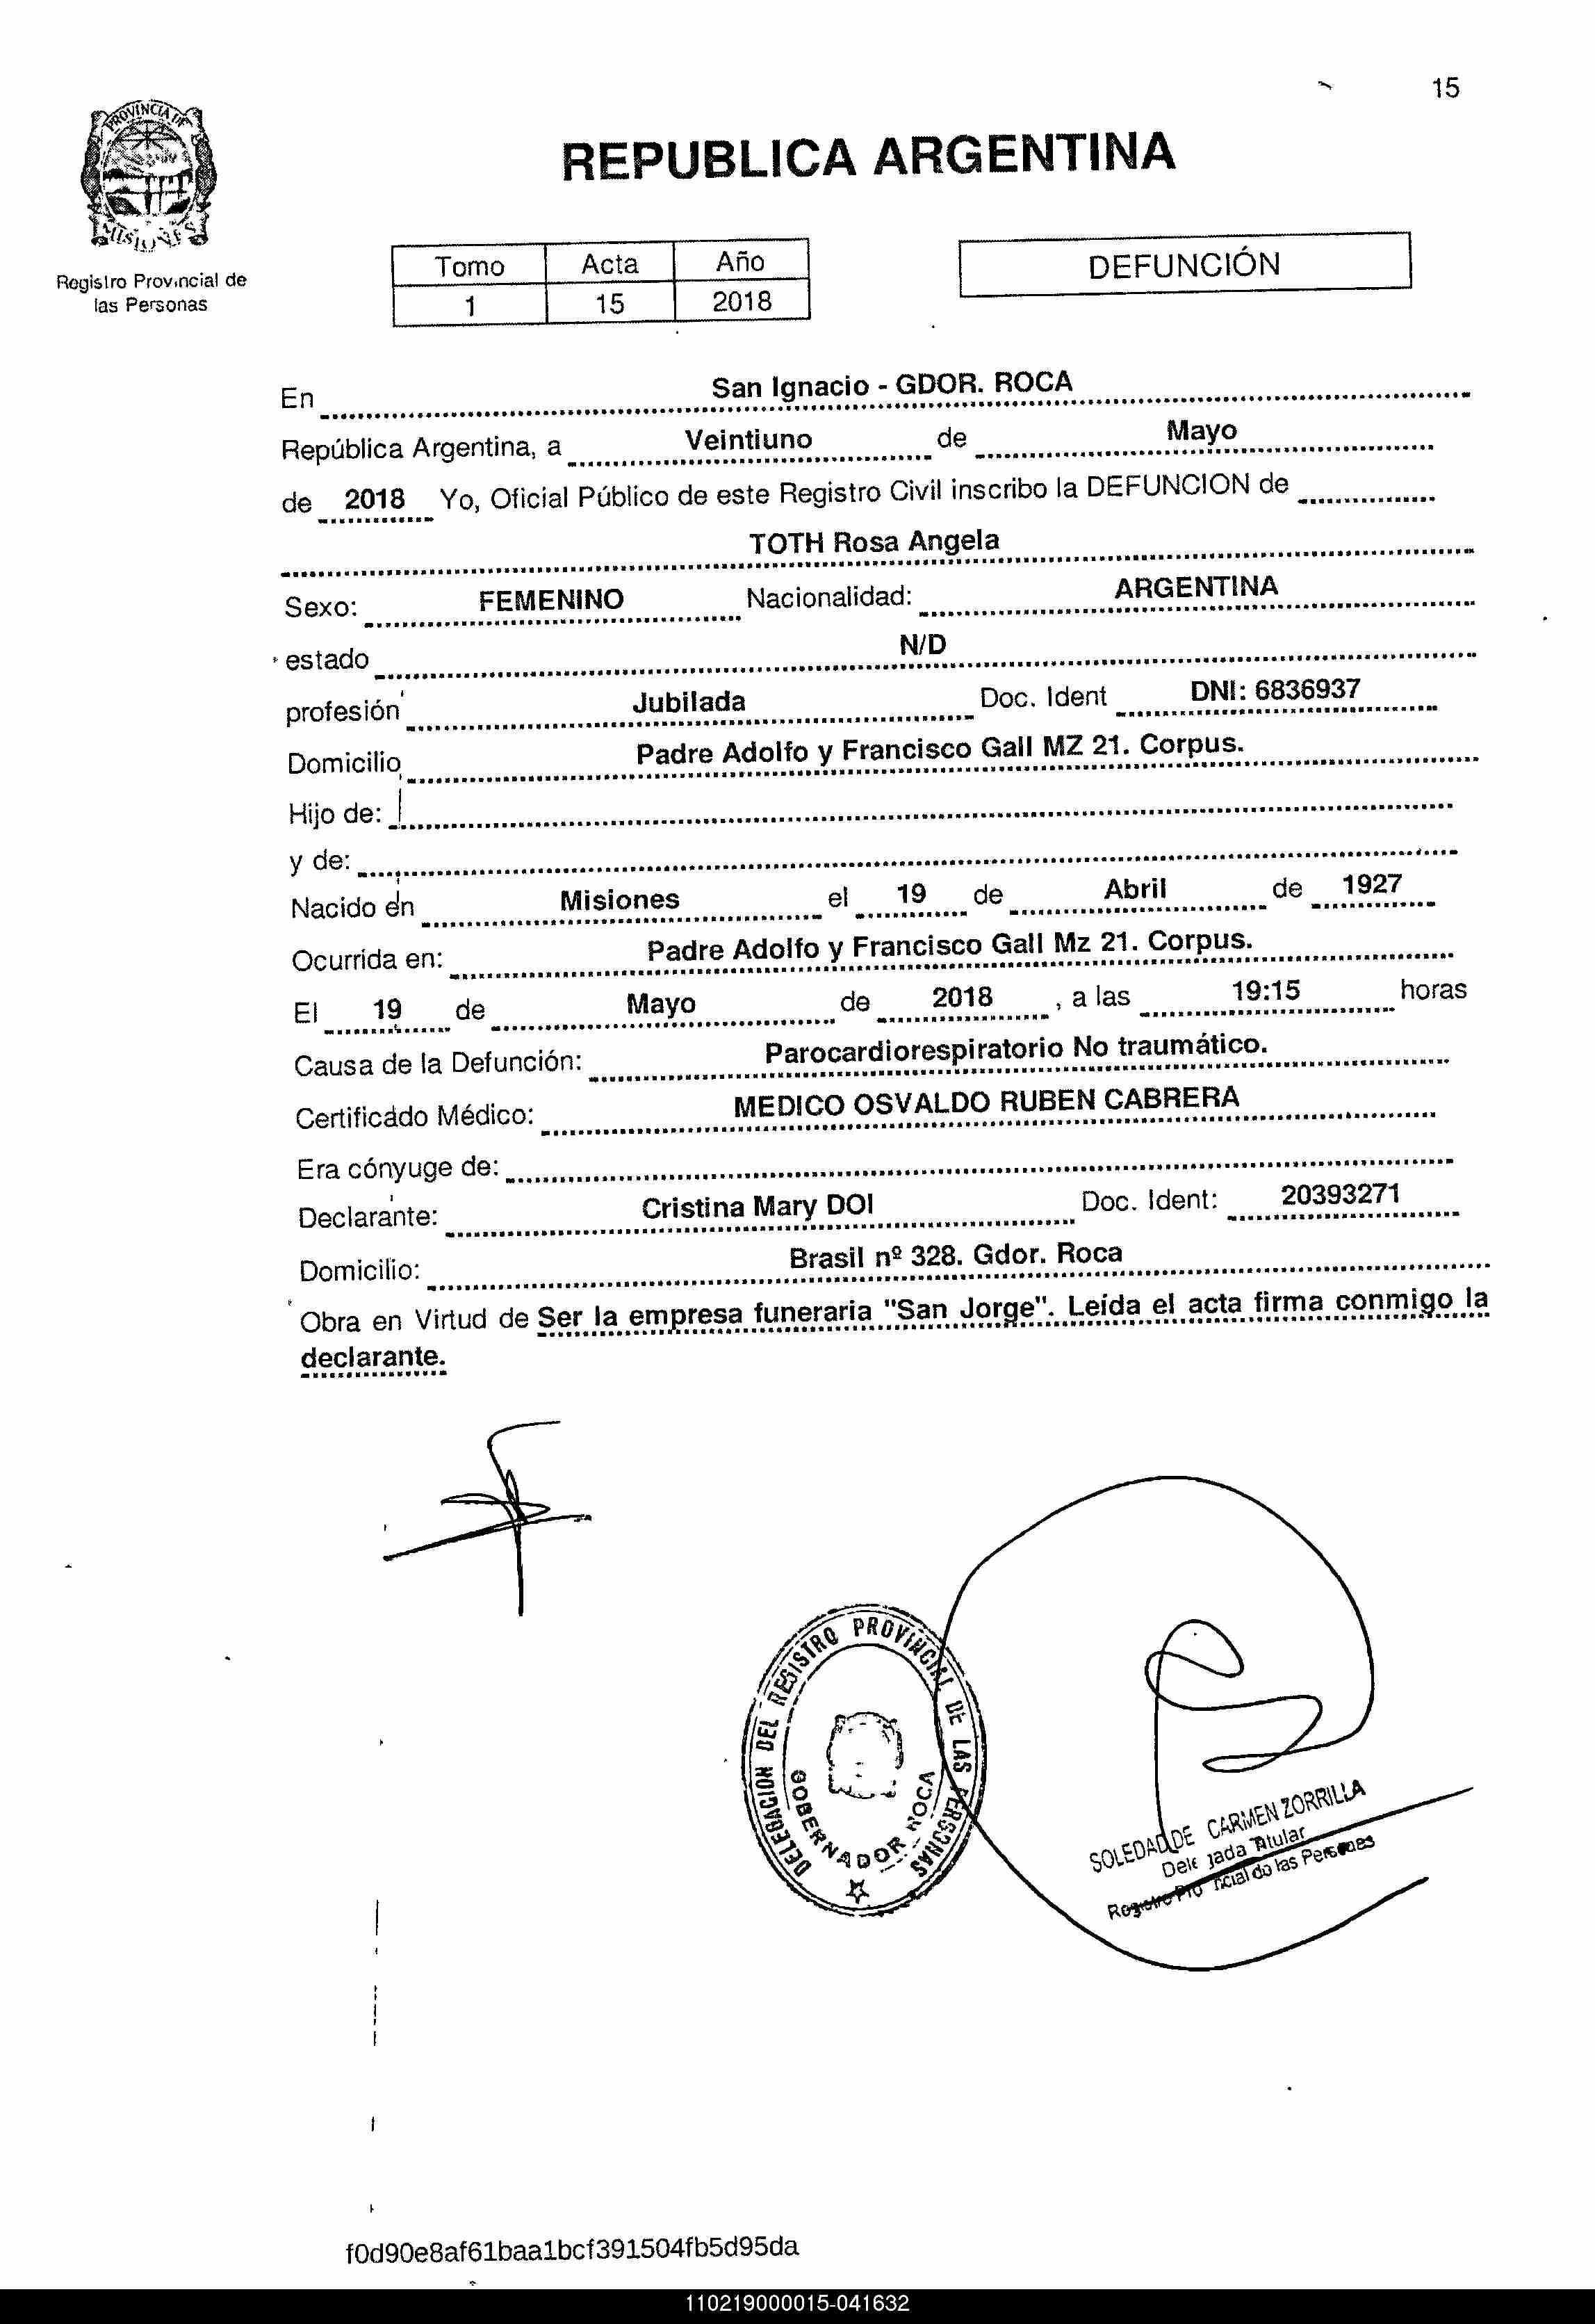 15
PROVINCIA DE
MISIONES
Registro Provincial de
las Personas
REPUBLICA ARGENTINA
Tomo Acta Año
1 15 2018
DEFUNCIÓN
En San Ignacio - GDOR. ROCA
República Argentina, a Veintiuno de Mayo
de 2018 Yo, Oficial Público de este Registro Civil inscribo la DEFUNCION de
TOTH Rosa Angela
Sexo: FEMENINO Nacionalidad: ARGENTINA
estado N/D
profesión Jubilada Doc. Ident DNI: 6836937
Domicilio Padre Adolfo y Francisco Gall MZ 21. Corpus.
Hijo de:
y de:
Nacido en Misiones el 19 de Abril de 1927
Ocurrida en: Padre Adolfo y Francisco Gall Mz 21. Corpus.
El 19 de Mayo de 2018 , a las 19:15 horas
Causa de la Defunción: Parocardiorespiratorio No traumático.
Certificado Médico: MEDICO OSVALDO RUBEN CABRERA
Era cónyuge de:
Declarante: Cristina Mary DOI Doc. Ident: 20393271
Domicilio: Brasil nº 328. Gdor. Roca
Obra en Virtud de Ser la empresa funeraria "San Jorge". Leída el acta firma conmigo la
declarante.
DELEGACION DEL REGISTRO PROVINCIAL DE LAS PERSONAS
GOBERNADOR ROCA
SOLEDAD DE CARMEN ZORRILLA
Delegada Titular
Registro Provincial de las Personas
f0d90e8af61baa1bcf391504fb5d95da
110219000015-041632